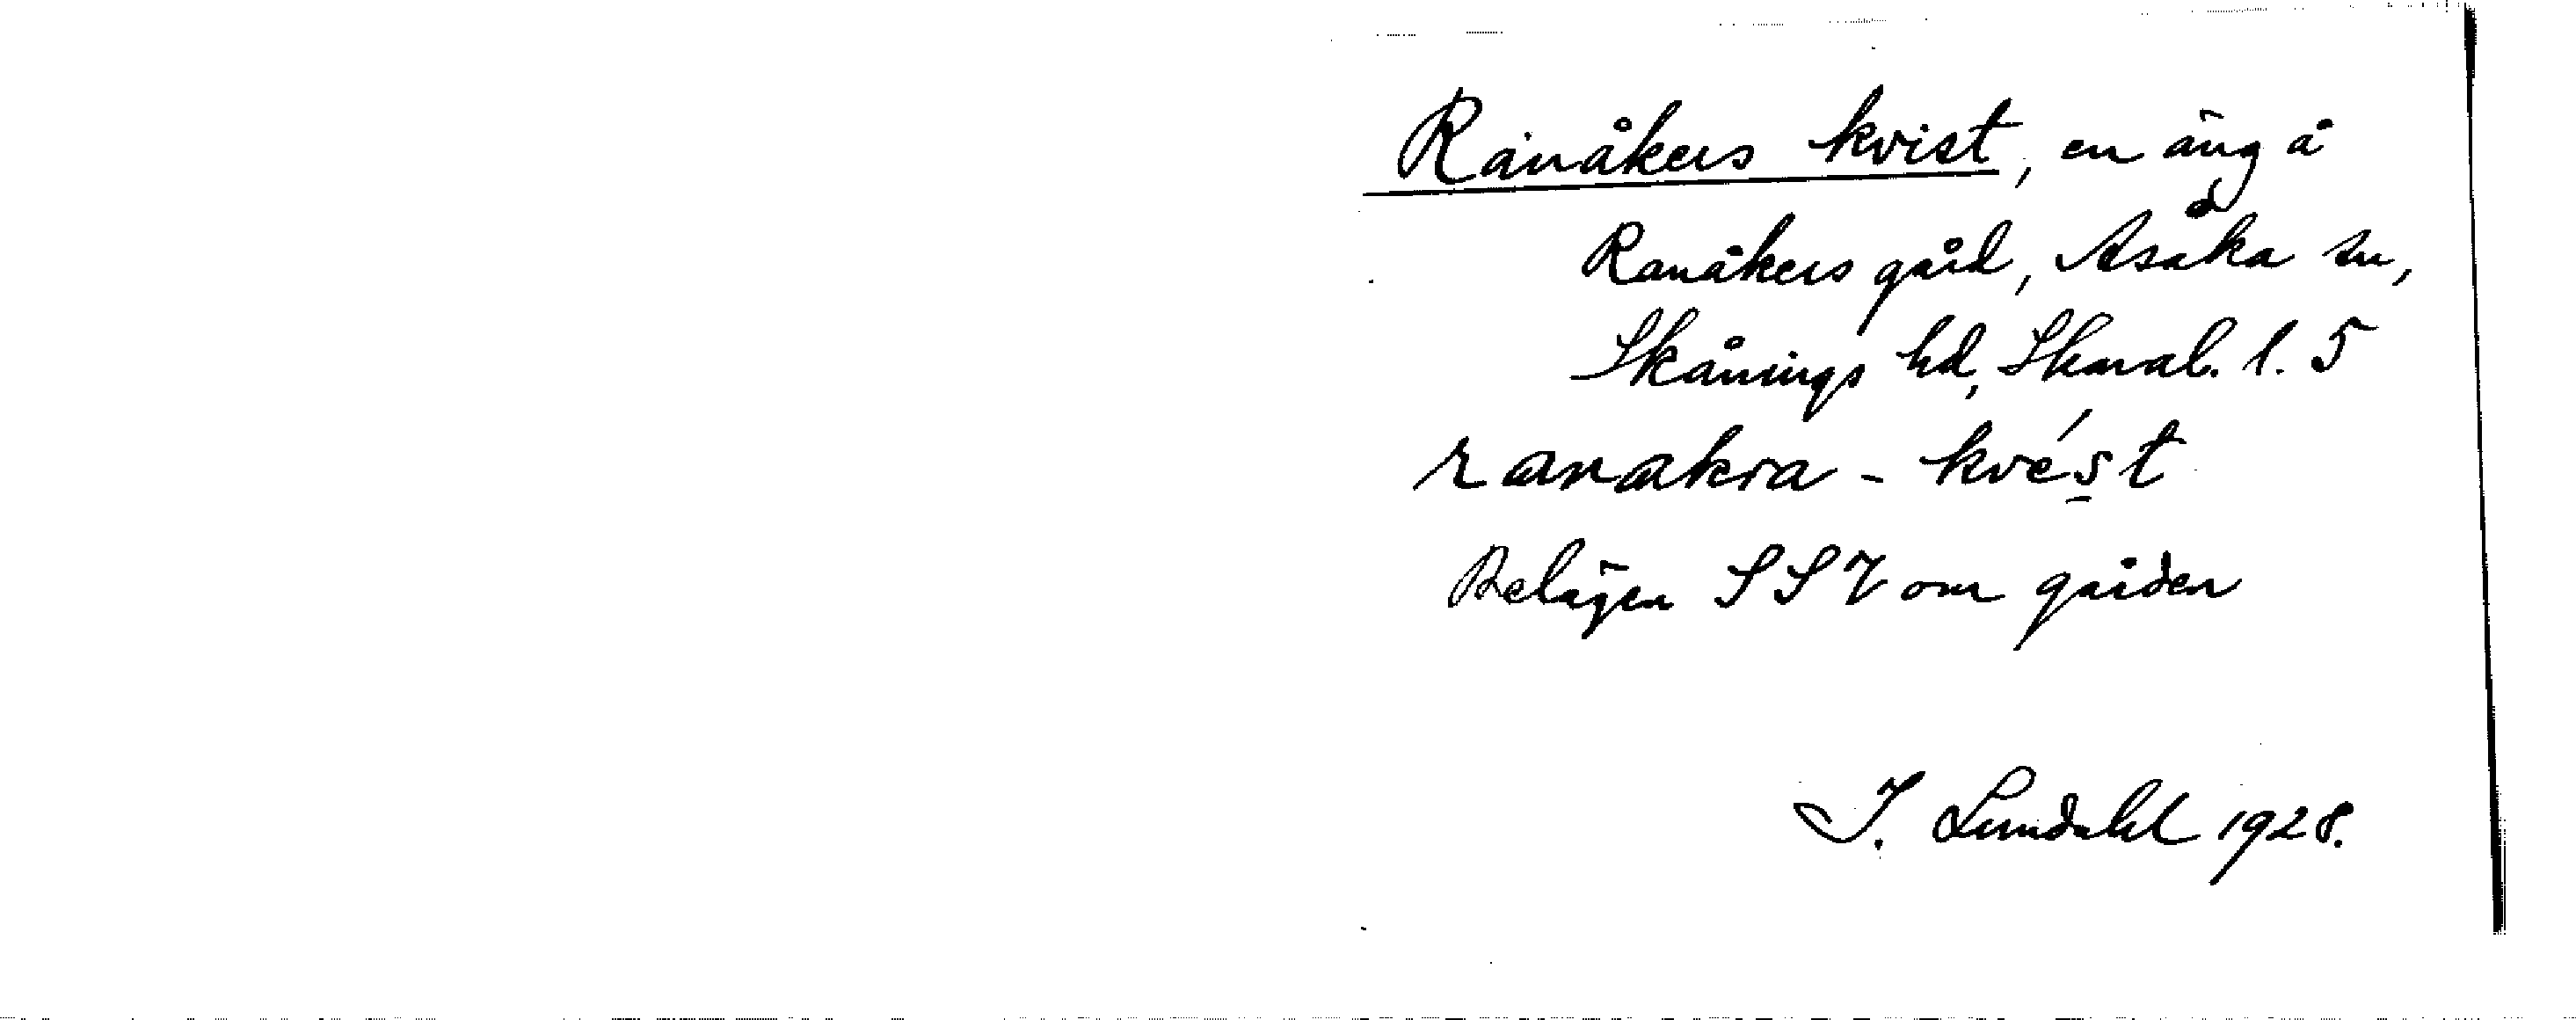 Ranåkers kvist, en äng å
Ranåkers gård, Åsaka sn,
Skånings hd, Skarab. l. 5
ranakra - kvést
Belägen SSV om gården
I. Lundahl 1928.